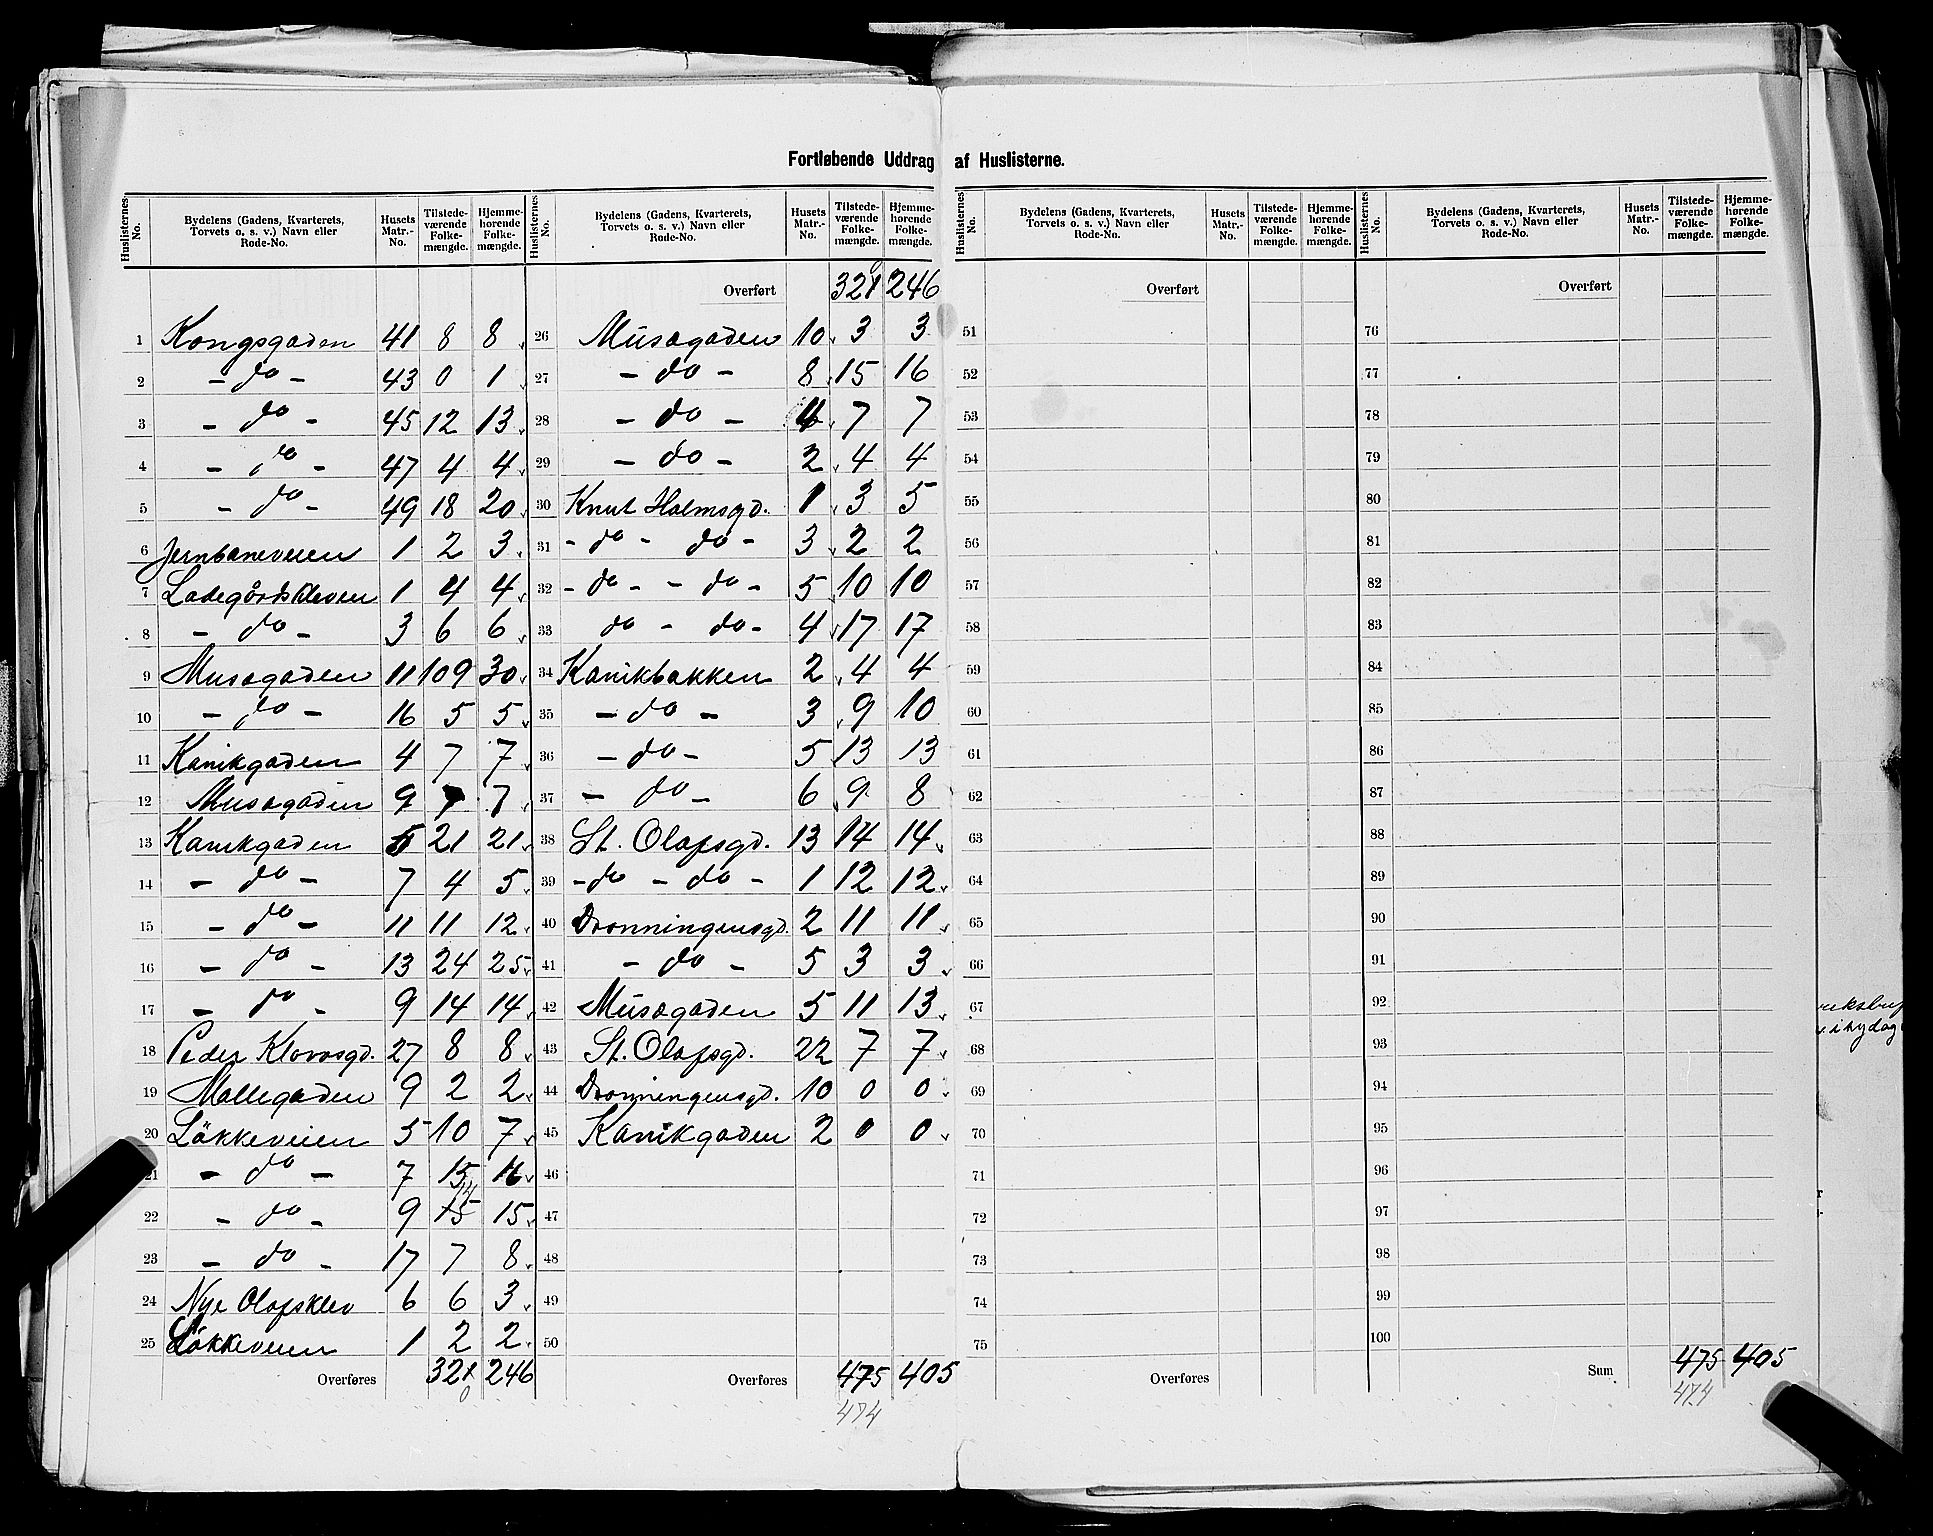 Fortløbende Uddrag af Huslisterne.
Huslisternes No. Bydelens (Gadens, Kvarterets, Torvets o. s. v.) Navn eller Rode-No. Husets Matr.-No. Tilstede-værende Folke-mængde. Hjemme-hørende Folke-mængde.
1 Kongsgaden 41 8 8
2 - do - 43 0 1
3 - do - 45 12 13
4 - do - 47 4 4
5 - do - 49 18 20
6 Jernbaneveien 1 2 3
7 Ladegårdskleven 1 4 4
8 - do - 3 6 6
9 Musægaden 11 109 30
10 - do - 16 5 5
11 Kanikgaden 4 7 7
12 Musægaden 9 7 7
13 Kanikgaden 5 21 21
14 - do - 7 4 5
15 - do - 11 11 12
16 - do - 13 24 25
17 - do - 9 14 14
18 Peder Klovsgd. 27 8 8
19 Møllegaden 9 2 2
20 Løkkeveien 5 10 7
21 - do - 7 15 16
22 - do - 9 15 14 15
23 - do - 17 7 8
24 Nye Olafsklev 6 6 3
25 Løkkeveien 1 2 2
Overføres 321 0 246
Huslisternes No. Bydelens (Gadens, Kvarterets, Torvets o. s. v.) Navn eller Rode-No. Husets Matr.-No. Tilstede-værende Folke-mængde. Hjemme-hørende Folke-mængde.
Overført 321 0 246
26 Musægaden 10 3 3
27 - do - 8 15 16
28 - do - 4 7 7
29 - do - 2 4 4
30 Knut Holmsgd. 1 3 5
31 - do - do - 3 2 2
32 - do - - do - 5 10 10
33 do - do - 4 17 17
34 Kanikbakken 2 4 4
35 - do - 3 9 10
36 - do - 5 13 13
37 - do - 6 9 8
38 St. Olafsgd. 13 14 14
39 - do - do - 1 12 12
40 Dronningensgd. 2 11 11
41 - do - 5 3 3
42 Musægaden 5 11 13
43 St. Olafsgd. 22 7 7
44 Dronningensgd. 10 0 0
45 Kanikgaden 2 0 0
46
47
48
49
50
Overføres 475 405
474
Huslisternes No. Bydelens (Gadens, Kvarterets, Torvets o. s. v.) Navn eller Rode-No. Husets Matr.-No. Tilstede-værende Folke-mængde. Hjemme-hørende Folke-mængde.
Overført
51
52
53
54
55
56
57
58
59
60
61
62
63
64
65
66
67
68
69
70
71
72
73
74
75
Overføres
Huslisternes No. Bydelens (Gadens, Kvarterets, Torvets o. s. v.) Navn eller Rode-No. Husets Matr.-No. Tilstede-værende Folke-mængde. Hjemme-hørende Folke-mængde.
Overført
76
77
78
79
80
81
82
83
84
85
86
87
88
89
90
91
92
93
94
95
96
97
98
99
100
Sum 475 405
474